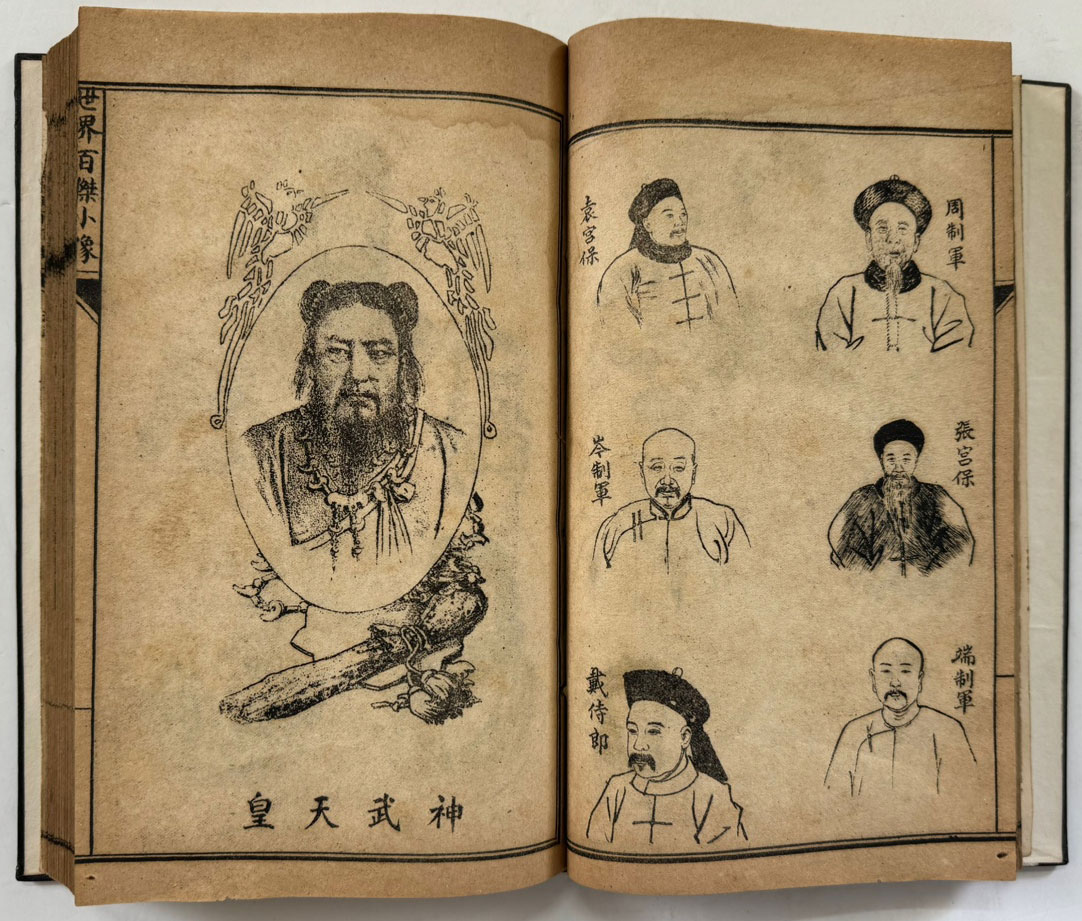 周制軍
袁宮保
張宮保
岑制軍
端制軍
戴侍郎
神武天皇
世界百傑小像